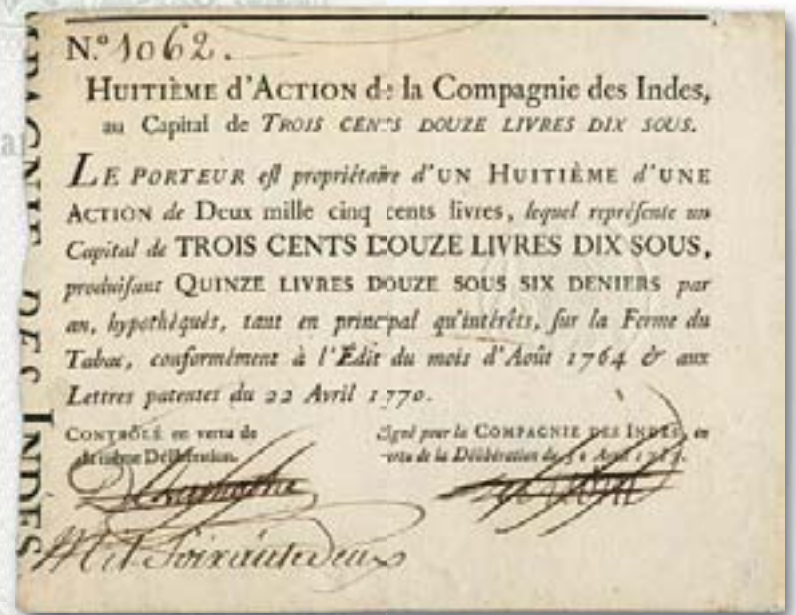 N.º 1062.
HUITIÈME d'ACTION de la Compagnie des Indes,
au Capital de TROIS CENTS DOUZE LIVRES DIX SOUS.
LE PORTEUR eſt propriétaire d'UN HUITIÈME d'UNE
ACTION de Deux mille cinq cents livres, lequel repréſente un
Capital de TROIS CENTS DOUZE LIVRES DIX SOUS,
produiſant QUINZE LIVRES DOUZE SOUS SIX DENIERS par
an, hypothéqués, tant en principal qu'intérêts, ſur la Ferme du
Tabac, conformément à l'Édit du mois d'Août 1764 & aux
Lettres patentes du 22 Avril 1770.
CONTRÔLÉ en vertu de
la même Délibération.
Signé pour la COMPAGNIE DES INDES, en
vertu de la Délibération du Avril
Mil Soixante deux
COMPAGNIE DES INDES